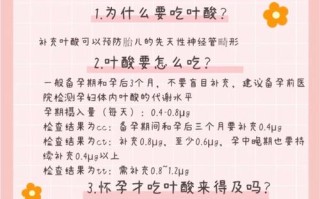 1.为什么要吃叶酸?
补充叶酸可以预防胎儿的先天性神经管畸形
2.叶酸要怎么吃?
一般备孕期和孕后3个月,不要盲目补充,建议备孕前医
院检测孕妇体内叶酸的代谢水平
孕期摄入量(每天):0.4-0.8μg
检查结果为cc:备孕期间和孕后三个月要补充0.4μg
检查结果为ct:补充0.8μg,至少0.6μg,孕中晚期也要持
续补充0.4μg以上
检查结果为tt:需补充0.8~1.2μg
3.怀孕才吃叶酸来得及吗?